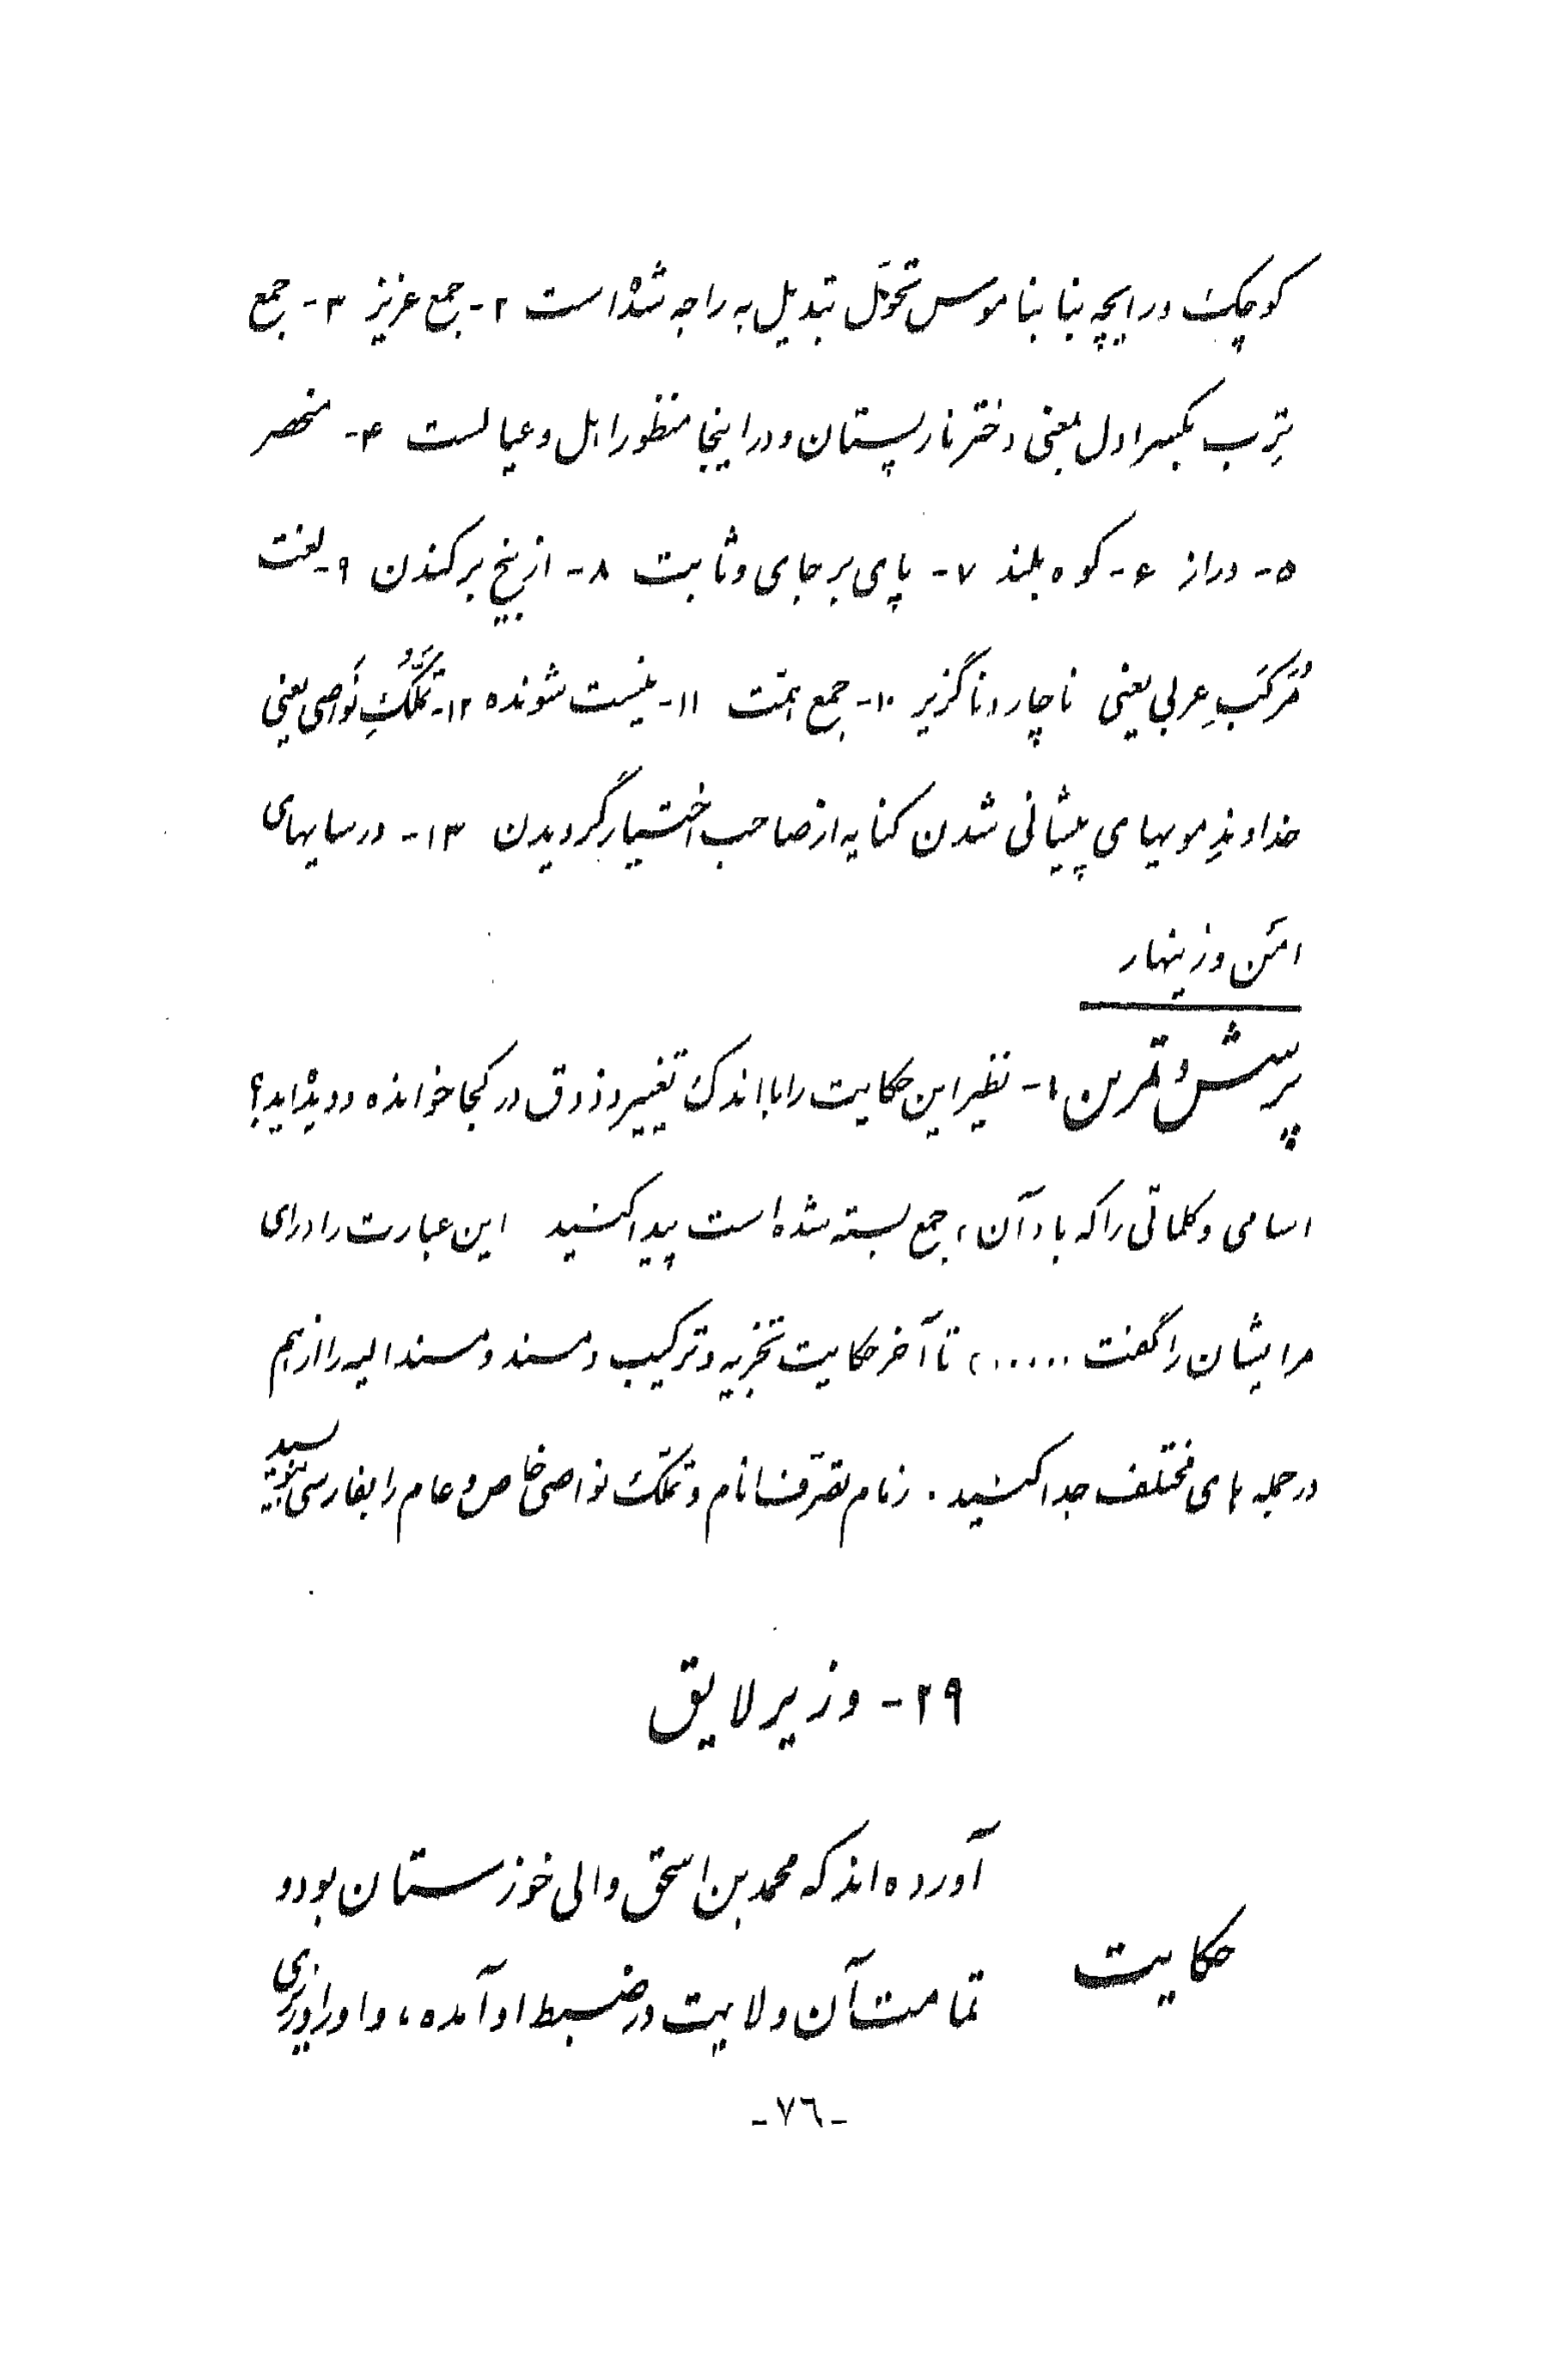 کوچک ورایچه بنا بناموس تحوّل تبدیل به راجه شده‌است ۲- جمع عزیز ۳- جمع
تِرب بکسر اول بمعنی دختر نارپستان و در اینجا منظور اهل و عیالست ۴- منحصر
۵- دراز ۶- کوه بلند ۷- پای برجای و ثابت ۸- از بیخ برکندن ۹- لغت
مُرکَّبِ عربی یعنی ناچار و ناگزیر ۱۰- جمع همّت ۱۱- نیست شونده ۱۲- تملّکِ نَواصی یعنی
خداوندِ مویهای پیشانی شدن کنایه از صاحب اختیار گردیدن ۱۳- در سایهای
امَن و زینهار
پرسش و تمرین ۱- نظیر این حکایت را با اندک تغییر و ذوق در کجا خوانده و دیده‌اید؟
اسامی و کلماتی را که با «آن» جمع بسته شده است پیدا کنید این عبارت را «رای
مر ایشان را گفت ......» تا آخر حکایت تجزیه و ترکیب و مسند و مسندالیه را از هم
در جمله های مختلف جدا کنید . زمام تصرّف انام و تملّک نواصی خاص و عام را بفارسی بنویسید
۲۹- وزیر لایق
حکایت
آورده اند که محمد بن اسحق والی خوزستان بود و
تمامت آن ولایت در ضبط او آمده، و او را وزیری
-٧٦-